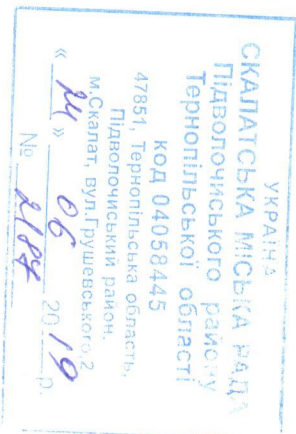 УКРАЇНА
СКАЛАТСЬКА МІСЬКА РАДА
Підволочиського району
Тернопільської області
код 04058445
47851, Тернопільська область,
Підволочиський район.
м.Скалат, вул.Грушевського,2
« 24 » 06 2019 р.
№ 2184